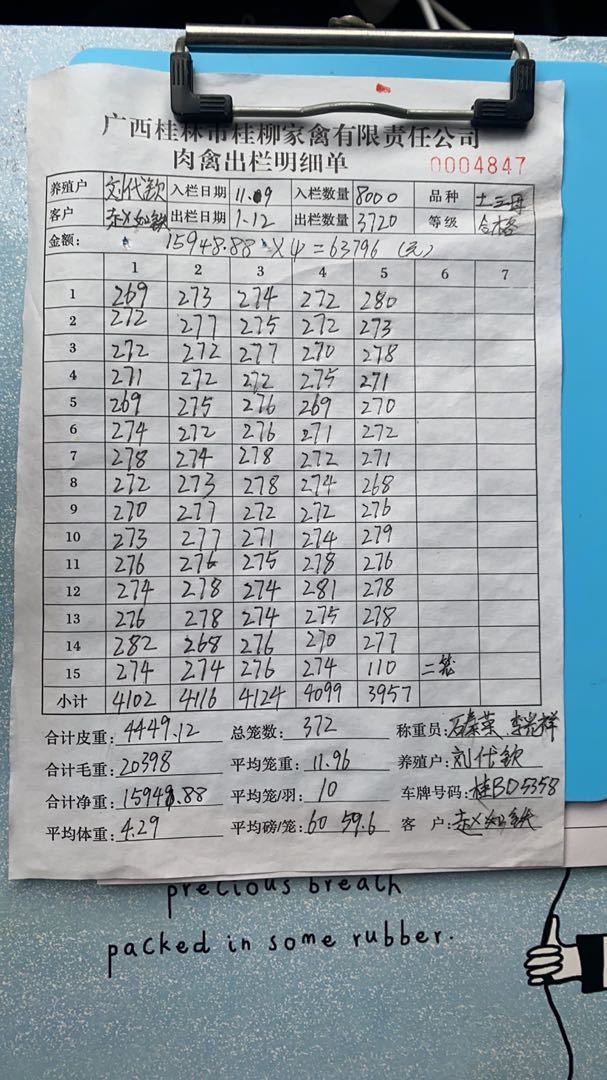 广西桂林市桂柳家禽有限责任公司
肉禽出栏明细单 0004847
养殖户 刘代钦 入栏日期 11.09 入栏数量 8000 品种
客户 出栏日期 1.12 出栏数量 3720 等级 合格
金额: 15948.88 × 4 = 63796 (元)
1 2 3 4 5 6 7
1 269 273 274 272 280
2 272 277 275 272 273
3 272 272 277 270 278
4 271 272 272 275 271
5 269 275 276 269 270
6 274 272 276 271 272
7 278 274 278 272 271
8 272 273 278 274 268
9 270 277 272 272 276
10 273 277 271 274 279
11 276 276 275 278 276
12 274 278 274 281 278
13 276 278 274 275 278
14 282 268 276 270 277
15 274 274 276 274 110 二笼
小计 4102 4116 4124 4099 3957
合计皮重: 4449.12 总笼数: 372 称重员:
合计毛重: 20398 平均笼重: 11.96 养殖户: 刘代钦
合计净重: 15948.88 平均笼/羽: 10 车牌号码: 桂BD5358
平均体重: 4.29 平均磅/笼: 60 59.6 客 户:
precious breath
packed in some rubber.